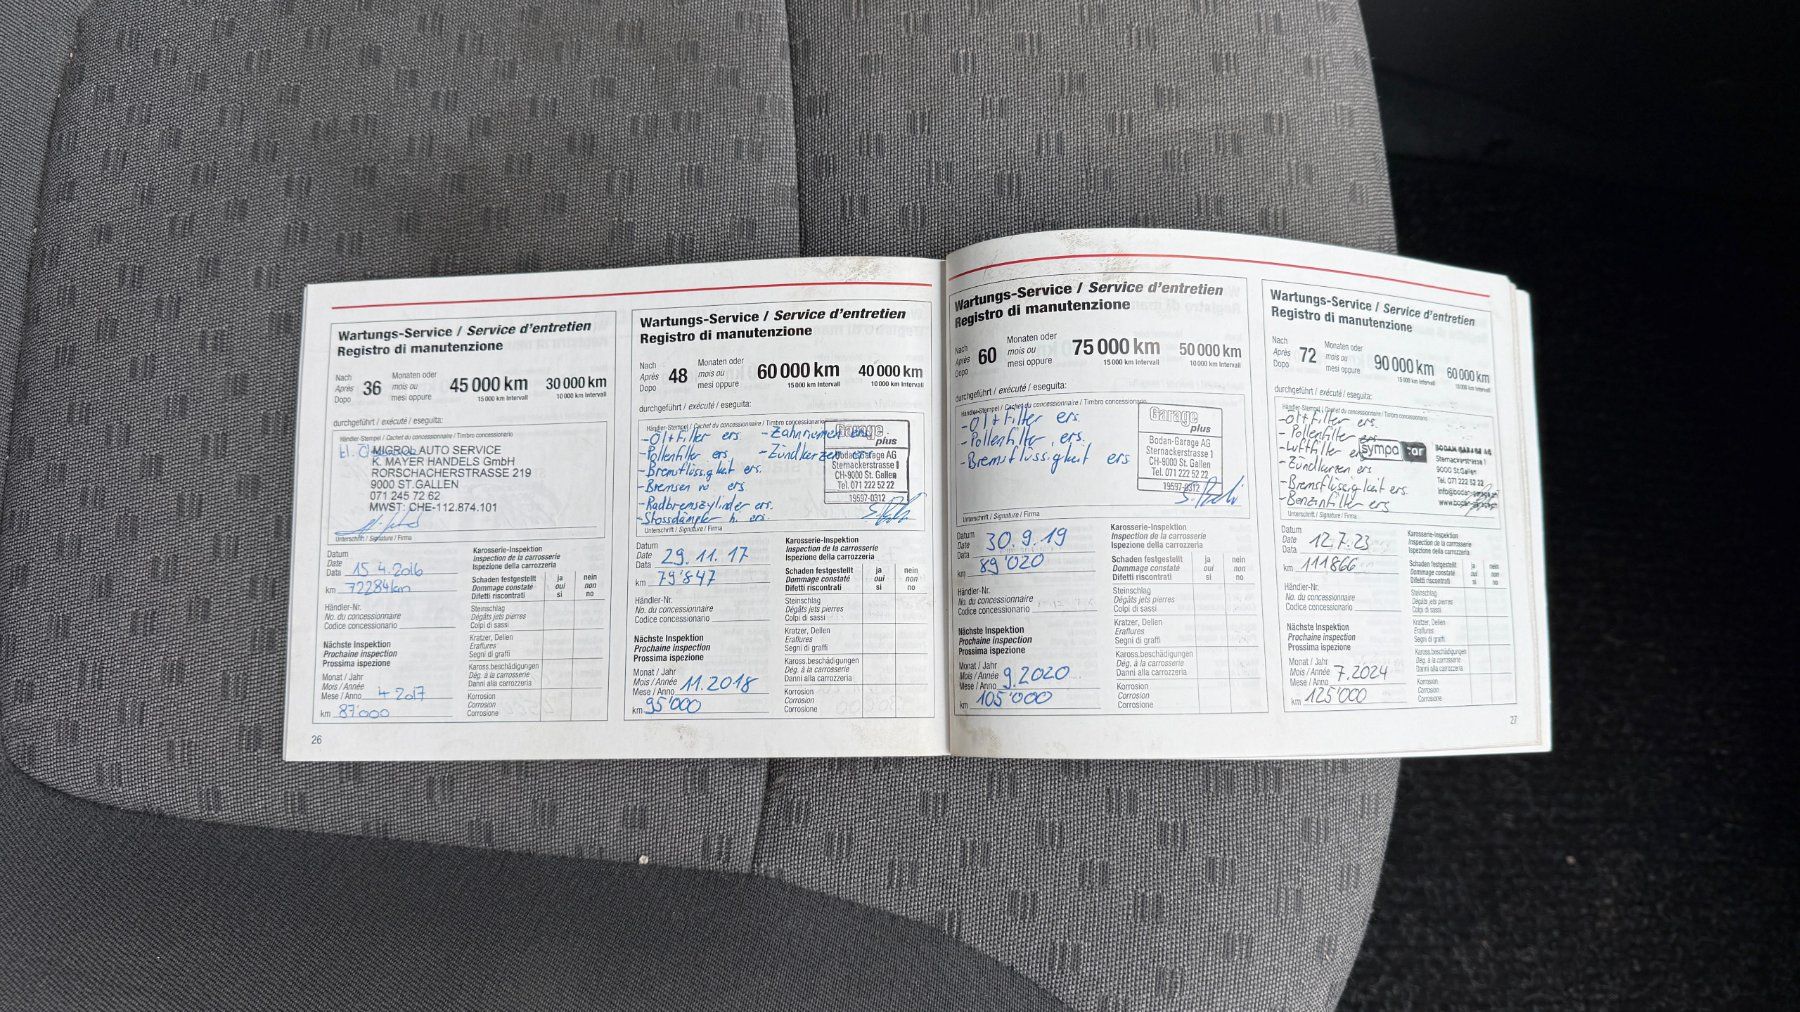 Wartungs-Service / Service d'entretien
Registro di manutenzione
Nach
Après
Dopo
36
Monaten oder
mois ou
mesi oppure
45 000 km
15 000 km Intervall
30 000 km
10 000 km Intervall
durchgeführt / exécuté / eseguita:
Händler-Stempel / Cachet du concessionnaire / Timbro concessionario
kl.
MIGROL AUTO SERVICE
K. MAYER HANDELS GmbH
RORSCHACHERSTRASSE 219
9000 ST.GALLEN
071 245 72 62
MWST: CHE-112.874.101
Unterschrift / Signature / Firma
Datum
Date
Data 15 4.2016
km 72284km
Händler-Nr.
No. du concessionnaire
Codice concessionario
Nächste Inspektion
Prochaine inspection
Prossima ispezione
Monat / Jahr
Mois / Année
Mese / Anno 4 2017
km 87'000
Karosserie-Inspektion
Inspection de la carrosserie
Ispezione della carrozzeria
Schaden festgestellt ja nein
Dommage constaté oui non
Difetti riscontrati si no
Steinschlag
Dégâts jets pierres
Colpi di sassi
Kratzer, Dellen
Eraflures
Segni di graffi
Kaross.beschädigungen
Dég. à la carrosserie
Danni alla carrozzeria
Korrosion
Corrosion
Corrosione
26
Wartungs-Service / Service d'entretien
Registro di manutenzione
Nach
Après
Dopo
48
Monaten oder
mois ou
mesi oppure
60 000 km
15 000 km Intervall
40 000 km
10 000 km Intervall
durchgeführt / exécuté / eseguita:
Händler-Stempel / Cachet du concessionnaire / Timbro concessionario
- Öl+Filter ers - Zahnriemen ers.
- Pollenfilter ers - Zündkerzen ers
- Bremsflüssigkeit ers.
- Bremsen ers.
- Radbremszylinder ers.
- Stossdämpfer h. ers.
Garage
plus
Bodan-Garage AG
Sternackerstrasse 1
CH-9000 St. Gallen
Tel. 071 222 52 22
19597-0312
Unterschrift / Signature / Firma
Datum
Date
Data 29. 11. 17
km 79'847
Händler-Nr.
No. du concessionnaire
Codice concessionario
Nächste Inspektion
Prochaine inspection
Prossima ispezione
Monat / Jahr
Mois / Année
Mese / Anno 11. 2018
km 95'000
Karosserie-Inspektion
Inspection de la carrosserie
Ispezione della carrozzeria
Schaden festgestellt ja nein
Dommage constaté oui non
Difetti riscontrati si no
Steinschlag
Dégâts jets pierres
Colpi di sassi
Kratzer, Dellen
Eraflures
Segni di graffi
Kaross.beschädigungen
Dég. à la carrosserie
Danni alla carrozzeria
Korrosion
Corrosion
Corrosione
Wartungs-Service / Service d'entretien
Registro di manutenzione
Nach
Après
Dopo
60
Monaten oder
mois ou
mesi oppure
75 000 km
15 000 km Intervall
50 000 km
10 000 km Intervall
durchgeführt / exécuté / eseguita:
Händler-Stempel / Cachet du concessionnaire / Timbro concessionario
- Öl+Filter ers.
- Pollenfilter ers.
- Bremsflüssigkeit ers
Garage
plus
Bodan-Garage AG
Sternackerstrasse 1
CH-9000 St. Gallen
Tel. 071 222 52 22
19597-0312
Unterschrift / Signature / Firma
Datum
Date
Data 30. 9. 19
km 89'020
Händler-Nr.
No. du concessionnaire
Codice concessionario
Nächste Inspektion
Prochaine inspection
Prossima ispezione
Monat / Jahr
Mois / Année
Mese / Anno 9. 2020
km 105'000
Karosserie-Inspektion
Inspection de la carrosserie
Ispezione della carrozzeria
Schaden festgestellt ja nein
Dommage constaté oui non
Difetti riscontrati si no
Steinschlag
Dégâts jets pierres
Colpi di sassi
Kratzer, Dellen
Eraflures
Segni di graffi
Kaross.beschädigungen
Dég. à la carrosserie
Danni alla carrozzeria
Korrosion
Corrosion
Corrosione
Wartungs-Service / Service d'entretien
Registro di manutenzione
Nach
Après
Dopo
72
Monaten oder
mois ou
mesi oppure
90 000 km
15 000 km Intervall
60 000 km
10 000 km Intervall
durchgeführt / exécuté / eseguita:
Händler-Stempel / Cachet du concessionnaire / Timbro concessionario
- Öl+Filter ers.
- Pollenfilter ers
- Luftfilter ers
- Zündkerzen ers
- Bremsflüssigkeit ers.
- Benzinfilter ers
sympacar
BODAN GARAGE AG
Sternackerstrasse 1
9000 St.Gallen
Tel. 071 222 52 22
Unterschrift / Signature / Firma
Datum
Date
Data 12. 7. 23
km 111866
Händler-Nr.
No. du concessionnaire
Codice concessionario
Nächste Inspektion
Prochaine inspection
Prossima ispezione
Monat / Jahr
Mois / Année
Mese / Anno 7. 2024
km 125'000
Karosserie-Inspektion
Inspection de la carrosserie
Ispezione della carrozzeria
Schaden festgestellt ja nein
Dommage constaté oui non
Difetti riscontrati si no
Steinschlag
Dégâts jets pierres
Colpi di sassi
Kratzer, Dellen
Eraflures
Segni di graffi
Kaross.beschädigungen
Dég. à la carrosserie
Danni alla carrozzeria
Korrosion
Corrosion
Corrosione
27